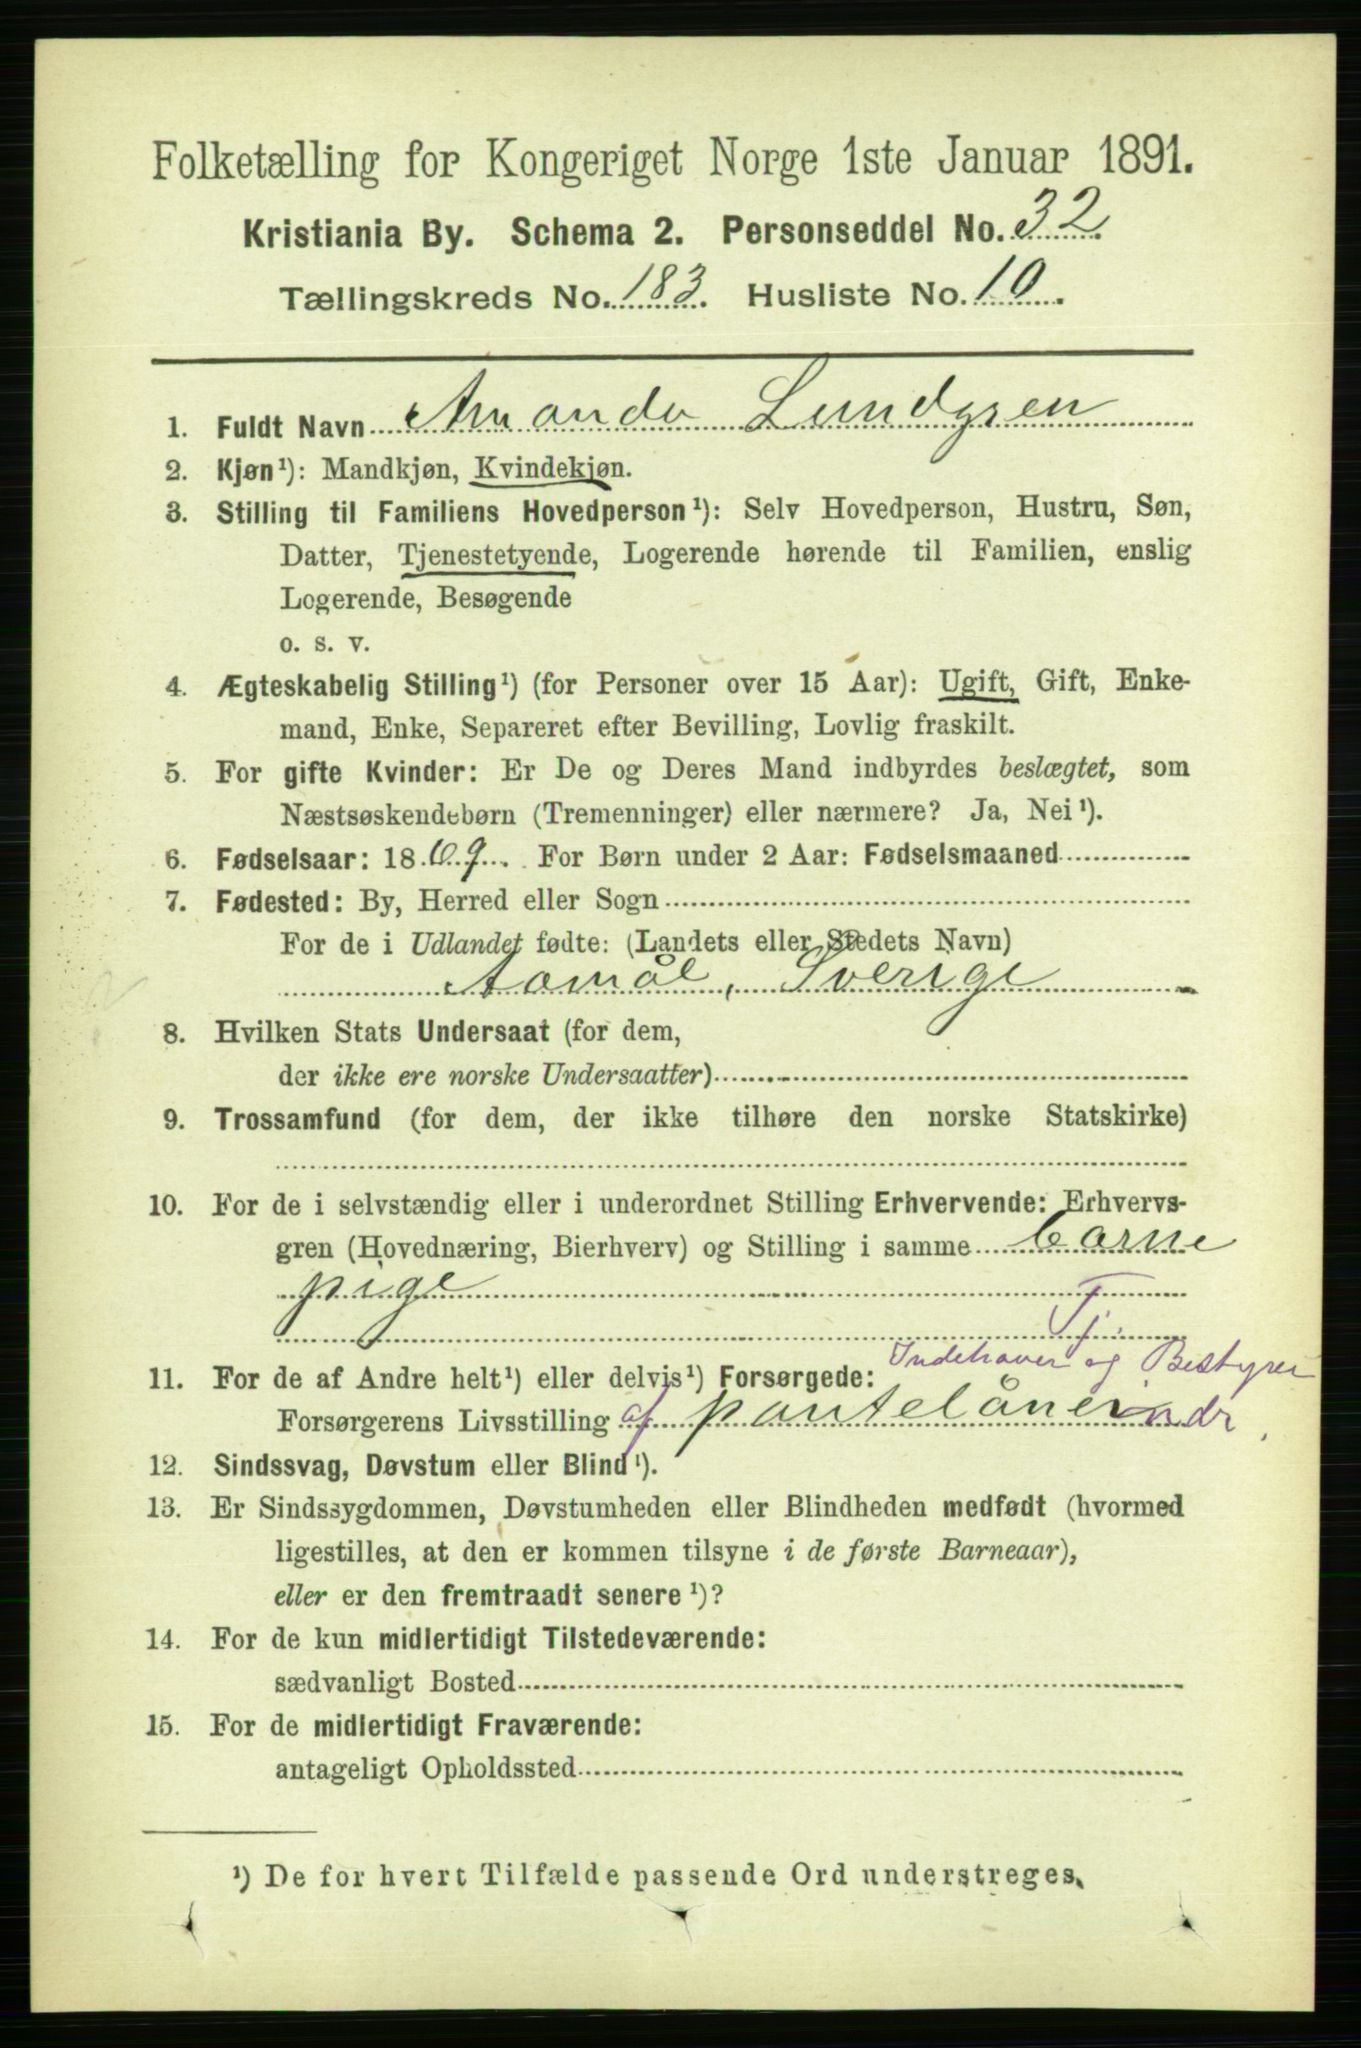 Folketælling for Kongeriget Norge 1ste Januar 1891.
Kristiania By. Schema 2. Personseddel No. 32.
Tællingskreds No. 183. Husliste No. 10.
1. Fuldt Navn Amanda Lundgren
2. Kjøn¹): Mandkjøn, Kvindekjøn.
3. Stilling til Familiens Hovedperson¹): Selv Hovedperson, Hustru, Søn,
Datter, Tjenestetyende, Logerende hørende til Familien, enslig
Logerende, Besøgende
o. s. v.
4. Ægteskabelig Stilling¹) (for Personer over 15 Aar): Ugift, Gift, Enke-
mand, Enke, Separeret efter Bevilling, Lovlig fraskilt.
5. For gifte Kvinder: Er De og Deres Mand indbyrdes beslægtet, som
Næstsøskendebørn (Tremenninger) eller nærmere? Ja, Nei¹).
6. Fødselsaar: 1869. For Børn under 2 Aar: Fødselsmaaned
7. Fødested: By, Herred eller Sogn
For de i Udlandet fødte: (Landets eller Stedets Navn)
Aamål, Sverige
8. Hvilken Stats Undersaat (for dem,
der ikke ere norske Undersaatter)
9. Trossamfund (for dem, der ikke tilhøre den norske Statskirke)
10. For de i selvstændig eller i underordnet Stilling Erhvervende: Erhvervs-
gren (Hovednæring, Bierhverv) og Stilling i samme barne
pige
Tj.
Indehaver og Bestyrer
11. For de af Andre helt¹) eller delvis¹) Forsørgede:
Forsørgerens Livsstilling af pantelåneindr.
12. Sindssvag, Døvstum eller Blind¹).
13. Er Sindssygdommen, Døvstumheden eller Blindheden medfødt (hvormed
ligestilles, at den er kommen tilsyne i de første Barneaar),
eller er den fremtraadt senere¹)?
14. For de kun midlertidigt Tilstedeværende:
sædvanligt Bosted
15. For de midlertidigt Fraværende:
antageligt Opholdssted
¹) De for hvert Tilfælde passende Ord understreges.